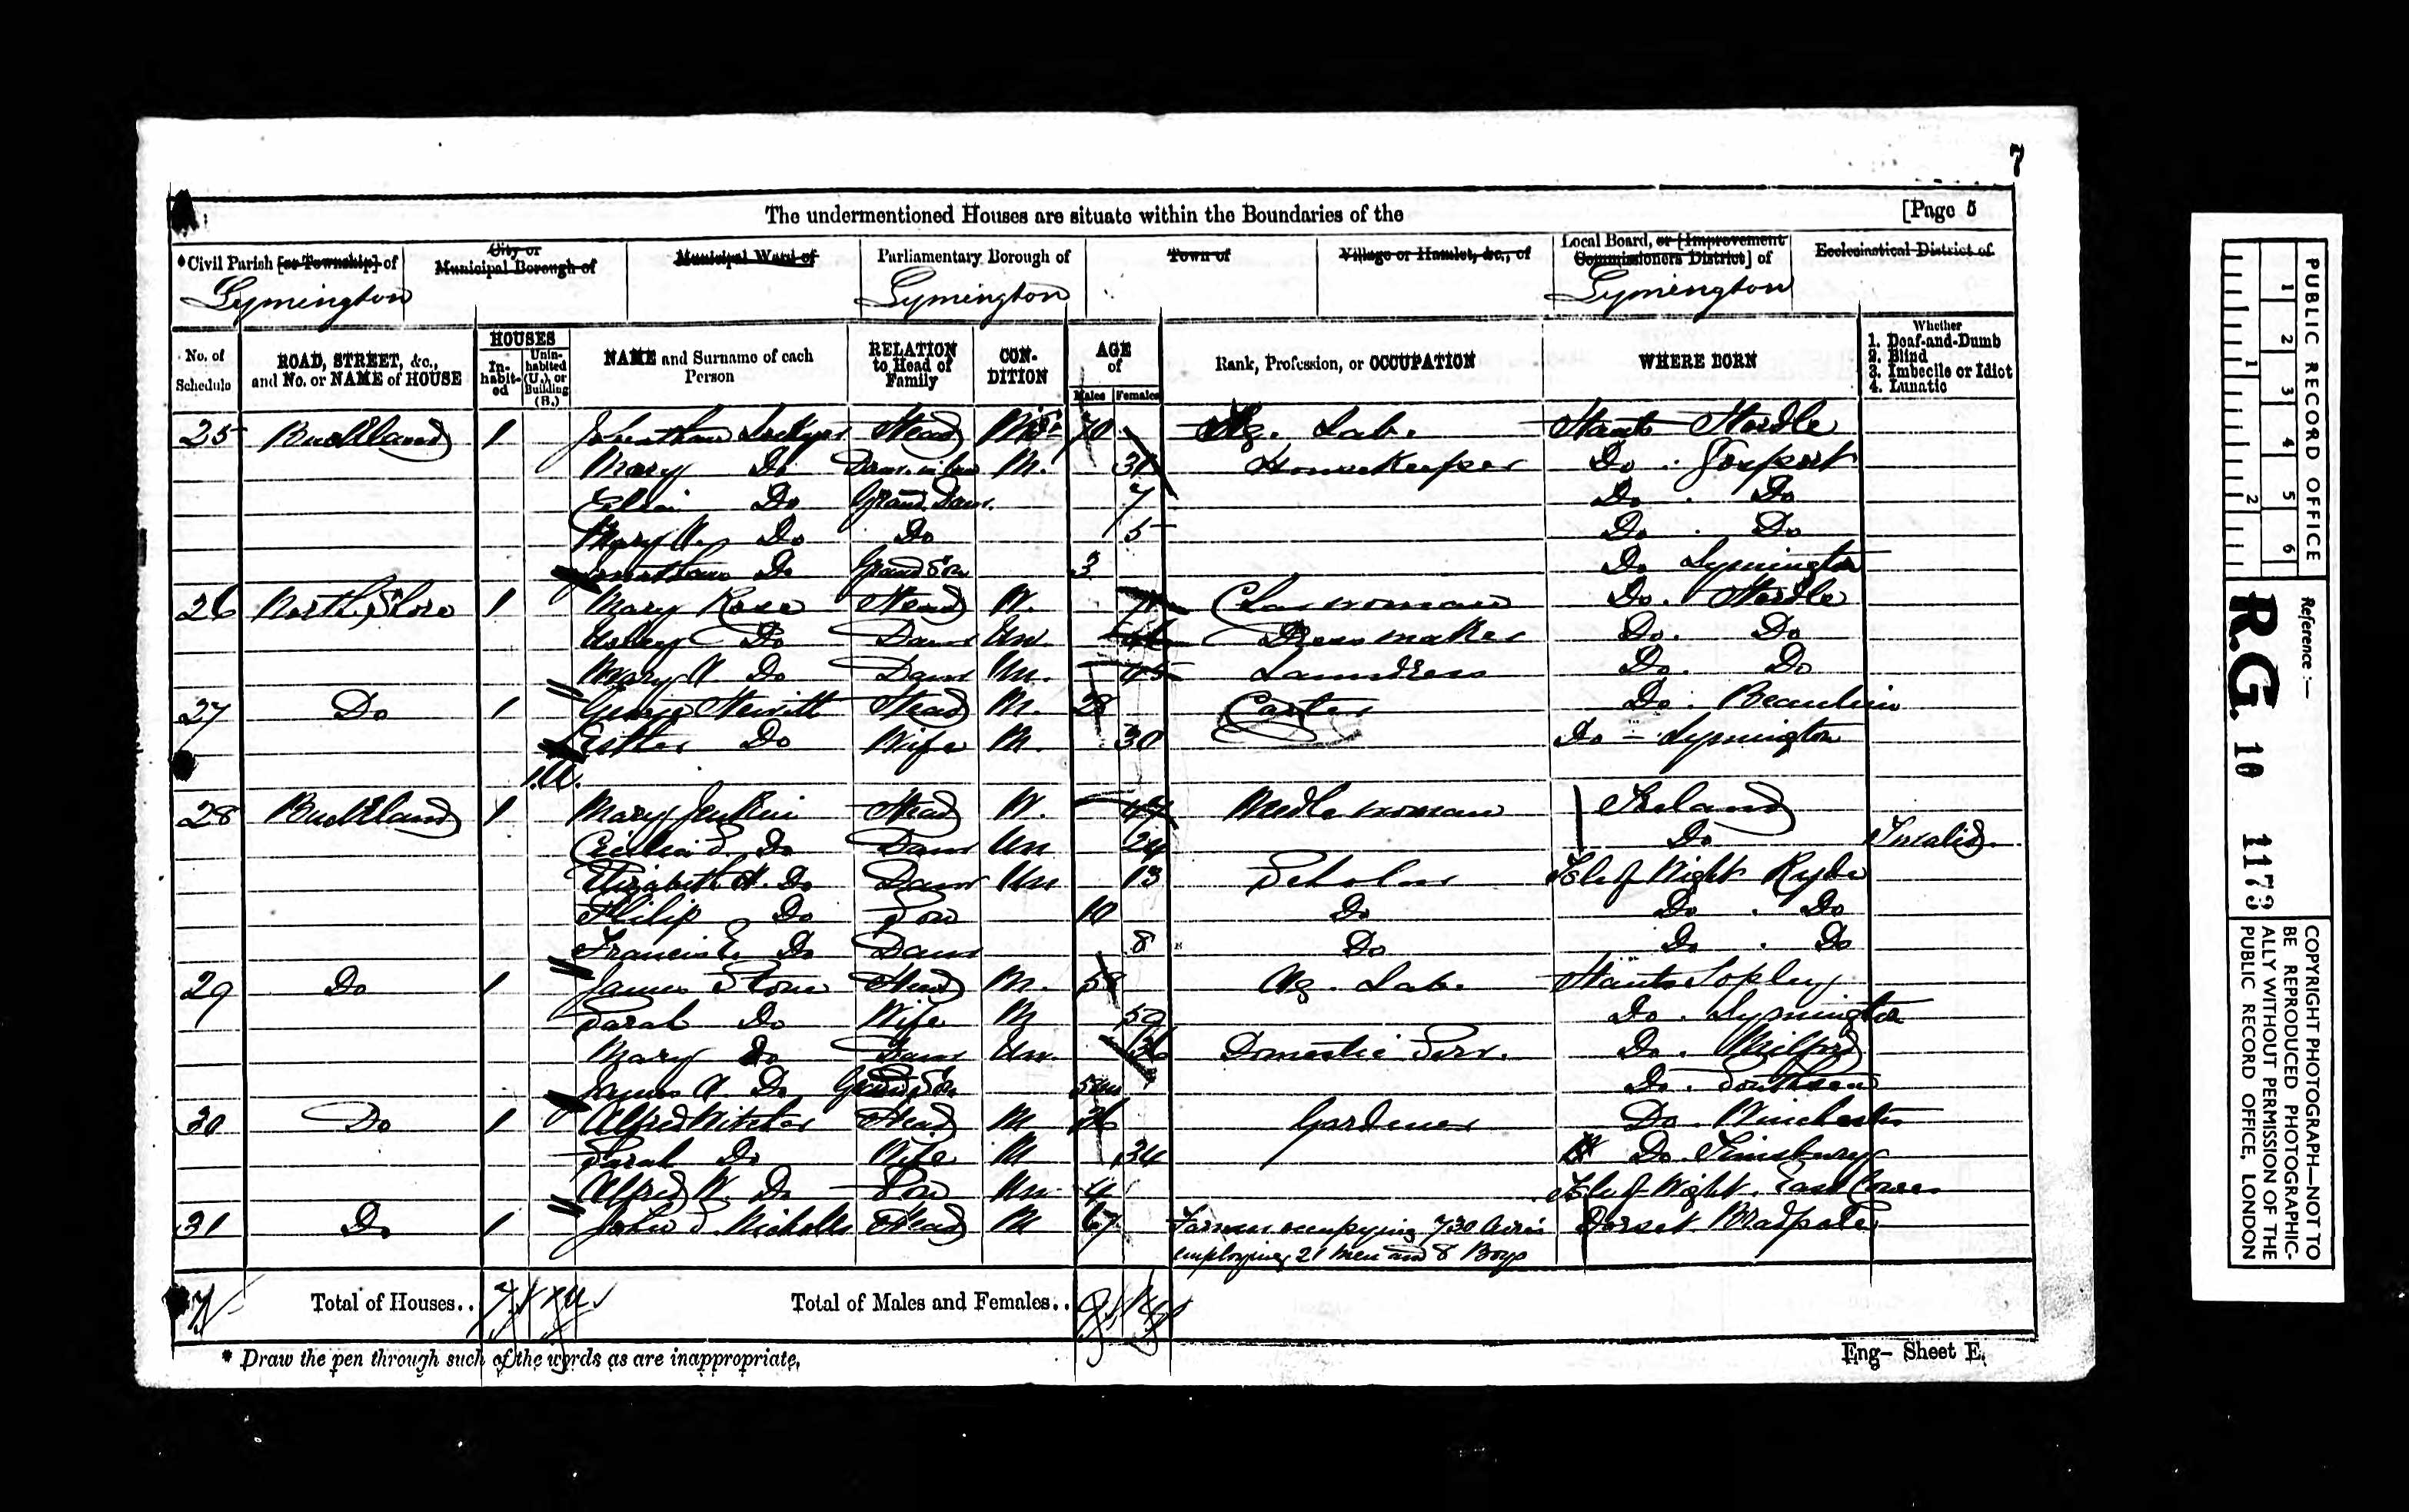 7
The undermentioned Houses are situate within the Boundaries of the [Page 5
*Civil Parish [or Township] of City or Municipal Borough of Municipal Ward of Parliamentary Borough of Town of Village or Hamlet, &c., of Local Board, or [Improvement Commissioners District] of Ecclesiastical District of
Lymington Lymington Lymington
No. of Schedule ROAD, STREET, &c., and No. or NAME of HOUSE HOUSES Inhabited Uninhabited (U.), or Building (B.) NAME and Surname of each Person RELATION to Head of Family CONDITION AGE of Males Females Rank, Profession, or OCCUPATION WHERE BORN Whether 1. Deaf-and-Dumb 2. Blind 3. Imbecile or Idiot 4. Lunatic
25 Buckland 1 Johnathan Lockyer Head 70 Ag. Lab. Hants Hordle
Mary Do Daur. in law M. 31 Housekeeper Do. Gosport
Do Grand Daur. 7 Do. Do
Mary A. Do Do 5 Do. Do
Do Grand Son 3 Do Lymington
26 North Shore 1 Mary Rose Head W. Charwoman Do. Hordle
Do Daur Un. Dressmaker Do. Do
Mary A. Do Daur Un. 45 Laundress Do. Do
27 Do 1 George Hewitt Head M. 28 Carter Do. Beaulieu
Esther Do Wife M. 30 Do - Lymington
1 U.
28 Buckland 1 Mary Jenkin Head W. Needlewoman Ireland
Do Daur Un 24 Do Invalid.
Elizabeth A. Do Daur Un 13 Scholar Isle of Wight Ryde
Philip Do Son 10 Do Do. Do
Do Daur 8 Do Do. Do
29 Do 1 James Stone Head M. 58 Ag. Lab. Hants Sopley
Sarah Do Wife M 59 Do. Lymington
Mary Do Daur Un. Domestic Serv. Do. Milford
James A. Do Grand Son 5m Do. Southsea
30 Do 1 Alfred Witcher Head M 26 Gardener Do. Winchester
Sarah Do Wife M 34 Do. Finsbury
Alfred W. Do Son Un 4 Isle of Wight. East Cowes
31 Do 1 John S. Nicholls Head M 67 Farmer occupying 730 Acres Dorset Bradpole
employing 21 men and 8 Boys
Total of Houses.. 7 1U Total of Males and Females.. 9
* Draw the pen through such of the words as are inappropriate.
Eng- Sheet E.
PUBLIC RECORD OFFICE
1 2 3 4 5 6
1 2
Reference :-
R.G. 10 1173
COPYRIGHT PHOTOGRAPH—NOT TO
BE REPRODUCED PHOTOGRAPHIC-
ALLY WITHOUT PERMISSION OF THE
PUBLIC RECORD OFFICE, LONDON